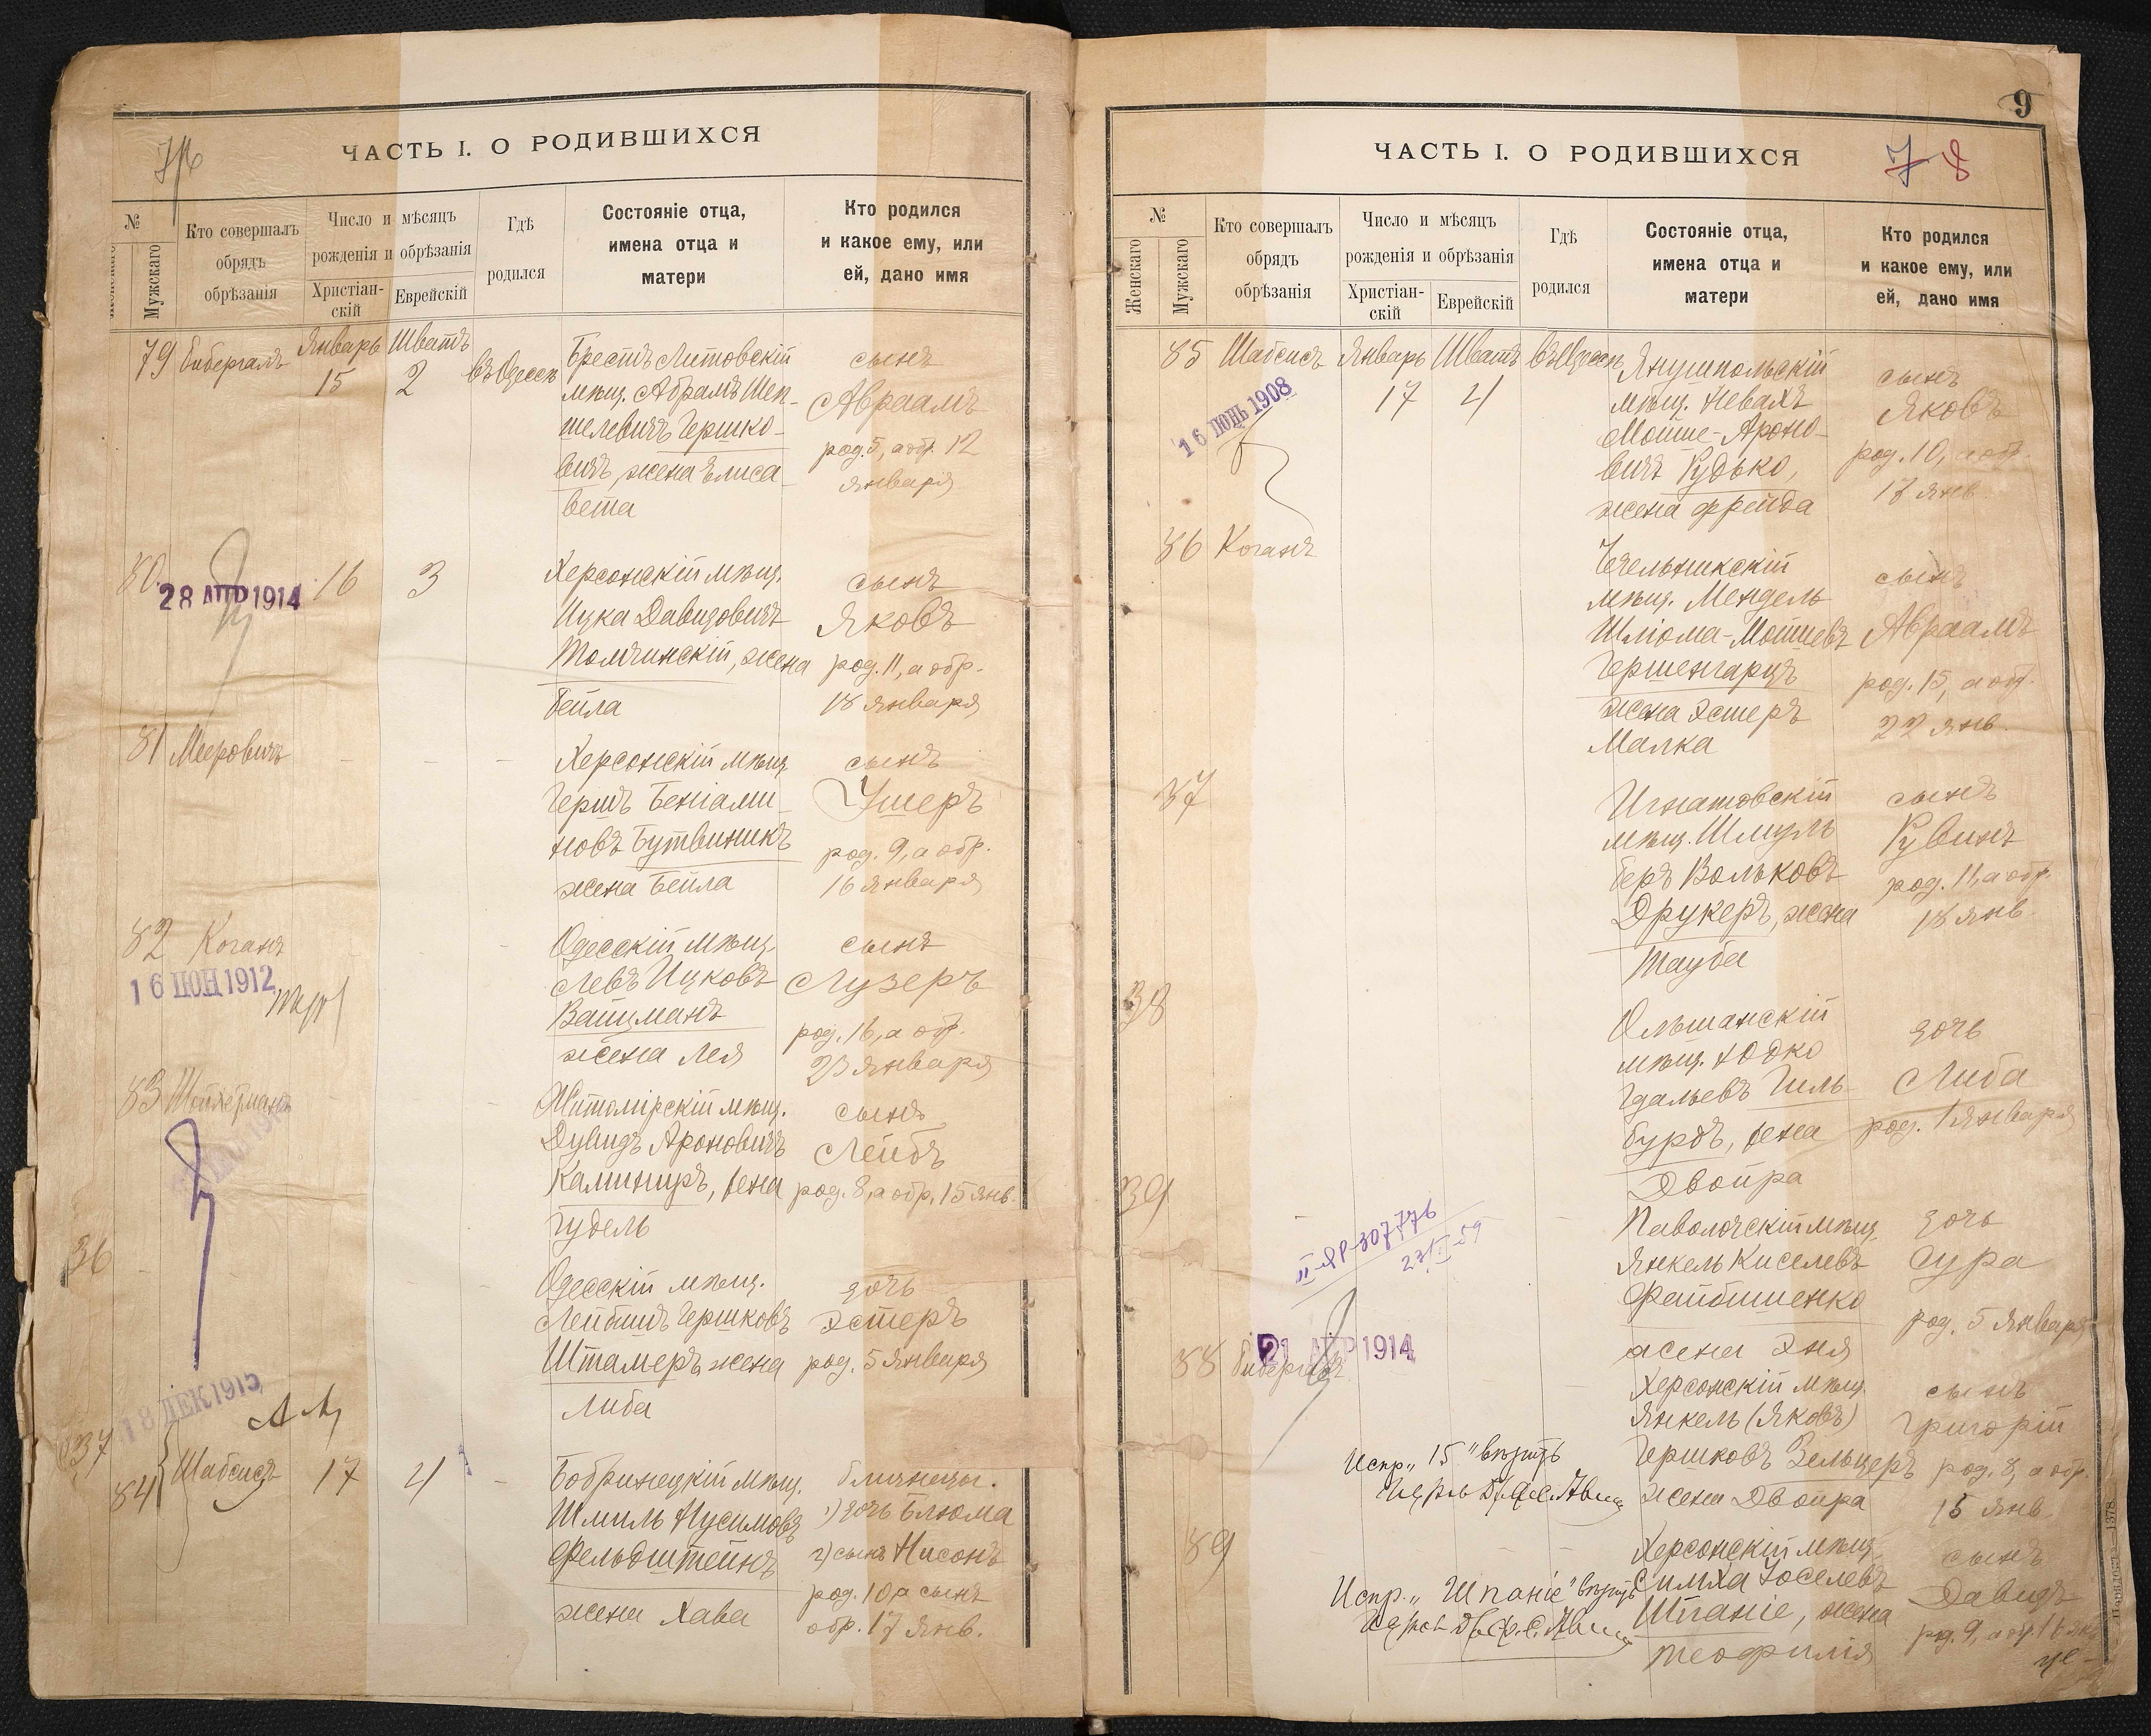 ЧАСТЬ I. О РОДИВШИХСЯ
№
Мужскаго
Кто совершалъ
обрядъ
обрѣзанія
Число и мѣсяцъ
рожденія и обрѣзанія
Христіан-
скій
Еврейскій
Гдѣ
родился
Состояніе отца,
имена отца и
матери
Кто родился
и какое ему, или
ей, дано имя
79
Январь Шватъ
15 2
въ Одессѣ
Брестъ Литовскій
мѣщ. Абрамъ Шеп-
шелевичъ Гершко-
вичъ, жена Елиса-
вета
сынъ
Авраамъ
род. 5, а обр. 12
января
80
28 АПР 1914
16 3
Херсонскій мѣщ.
Ицка Давидовичъ
Толчинскій, жена
Бейла
сынъ
Яковъ
род. 11, а обр.
18 января
81 Мееровичъ
Херсонскій мѣщ.
Гершъ Беніами-
новъ Бутвиникъ
жена Бейла
сынъ
Ушеръ
род. 9, а обр.
16 января
82 Коганъ
16 ІЮН 1912
Одесскій мѣщ.
Левъ Ицковъ
Вайцманъ
жена Лея
сынъ
Лузеръ
род. 16, а обр.
23 января
83
Житомірскій мѣщ.
Дувидъ Ароновичъ
Калиниръ, жена
Гудель
сынъ
Лейбъ
род. 8, а обр. 15 янв.
36
Одесскій мѣщ.
Лейбишъ Гершковъ
Штамеръ жена
Либа
дочь
Эстеръ
род. 5 января
18 ДЕК 1915
37
84 Шабсисъ 17 4
Бобринецкій мѣщ.
Шмиль Нусимовъ
Фельдштейнъ
жена Хава
близнецы.
1) дочь Блюма
2) сынъ Нисонъ
род. 10 а сынъ
обр. 17 янв.
9
ЧАСТЬ I. О РОДИВШИХСЯ
7 8
№
Женскаго
Мужскаго
Кто совершалъ
обрядъ
обрѣзанія
Число и мѣсяцъ
рожденія и обрѣзанія
Христіан-
скій
Еврейскій
Гдѣ
родился
Состояніе отца,
имена отца и
матери
Кто родился
и какое ему, или
ей, дано имя
85 Шабсисъ Январь Шватъ въ Одессѣ
17 4
16 ІЮНЬ 1908
Янушпольскій
мѣщ. Невахъ
Мойше-Ароно-
вичъ Рудько,
жена Фрейда
сынъ
Яковъ
род. 10, а обр.
17 янв.
86 Коганъ
Чечельникскій
мѣщ. Мендель
Шліома-Мошковъ
Гершенгарцъ
жена Эстеръ
Малка
сынъ
Авраамъ
род. 15, а обр.
22 янв.
87
Игнатовскій
мѣщ. Шмуль
Беръ Вольковъ
Друкеръ, жена
Тауба
сынъ
Рувинъ
род. 11, а обр.
18 янв.
38
Ольшанскій
мѣщ. Юдко
Гдальевъ Гиль-
бурдъ, жена
Двойра
дочь
Либа
род. 1 января
39
Паволочскій мѣщ.
Янкель Киселевъ
Файбишенко
жена Эня
дочь
Сура
род. 5 января
88
21 АПР 1914
Херсонскій мѣщ.
Янкель (Яковъ)
Гершковъ Зельцеръ
жена Двойра
сынъ
Григорій
род. 8, а обр.
15 янв.
Испр. „15" вѣрить
89
Херсонскій мѣщ.
Симха Іоселевъ
Шпаніе, жена
Теофилія
сынъ
Давидъ
род. 9, а обр. 16 янв.
Испр. „Шпаніе" вѣрить